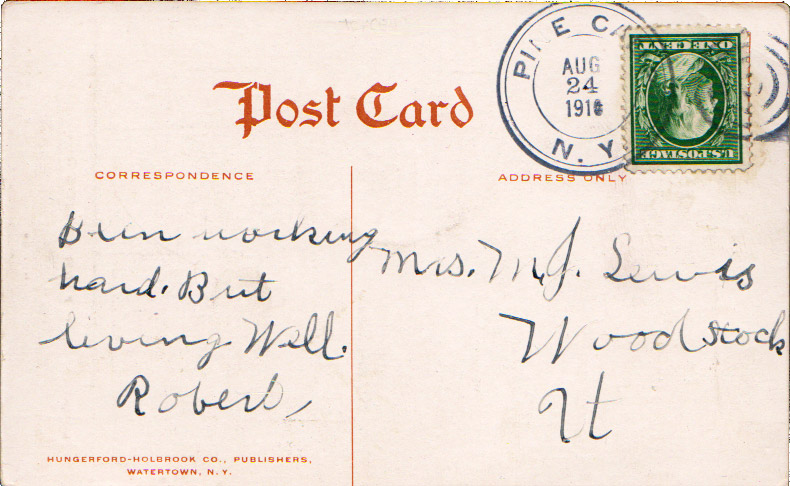 PINE CA
AUG
24
191
N. Y.
ONE CENT
U.S. POSTAGE
Post Card
CORRESPONDENCE
ADDRESS ONLY
Been working
hard. But
living Well.
Robert,
Mrs. M. J. Lewis
Woodstock
Vt
HUNGERFORD-HOLBROOK CO., PUBLISHERS,
WATERTOWN, N. Y.